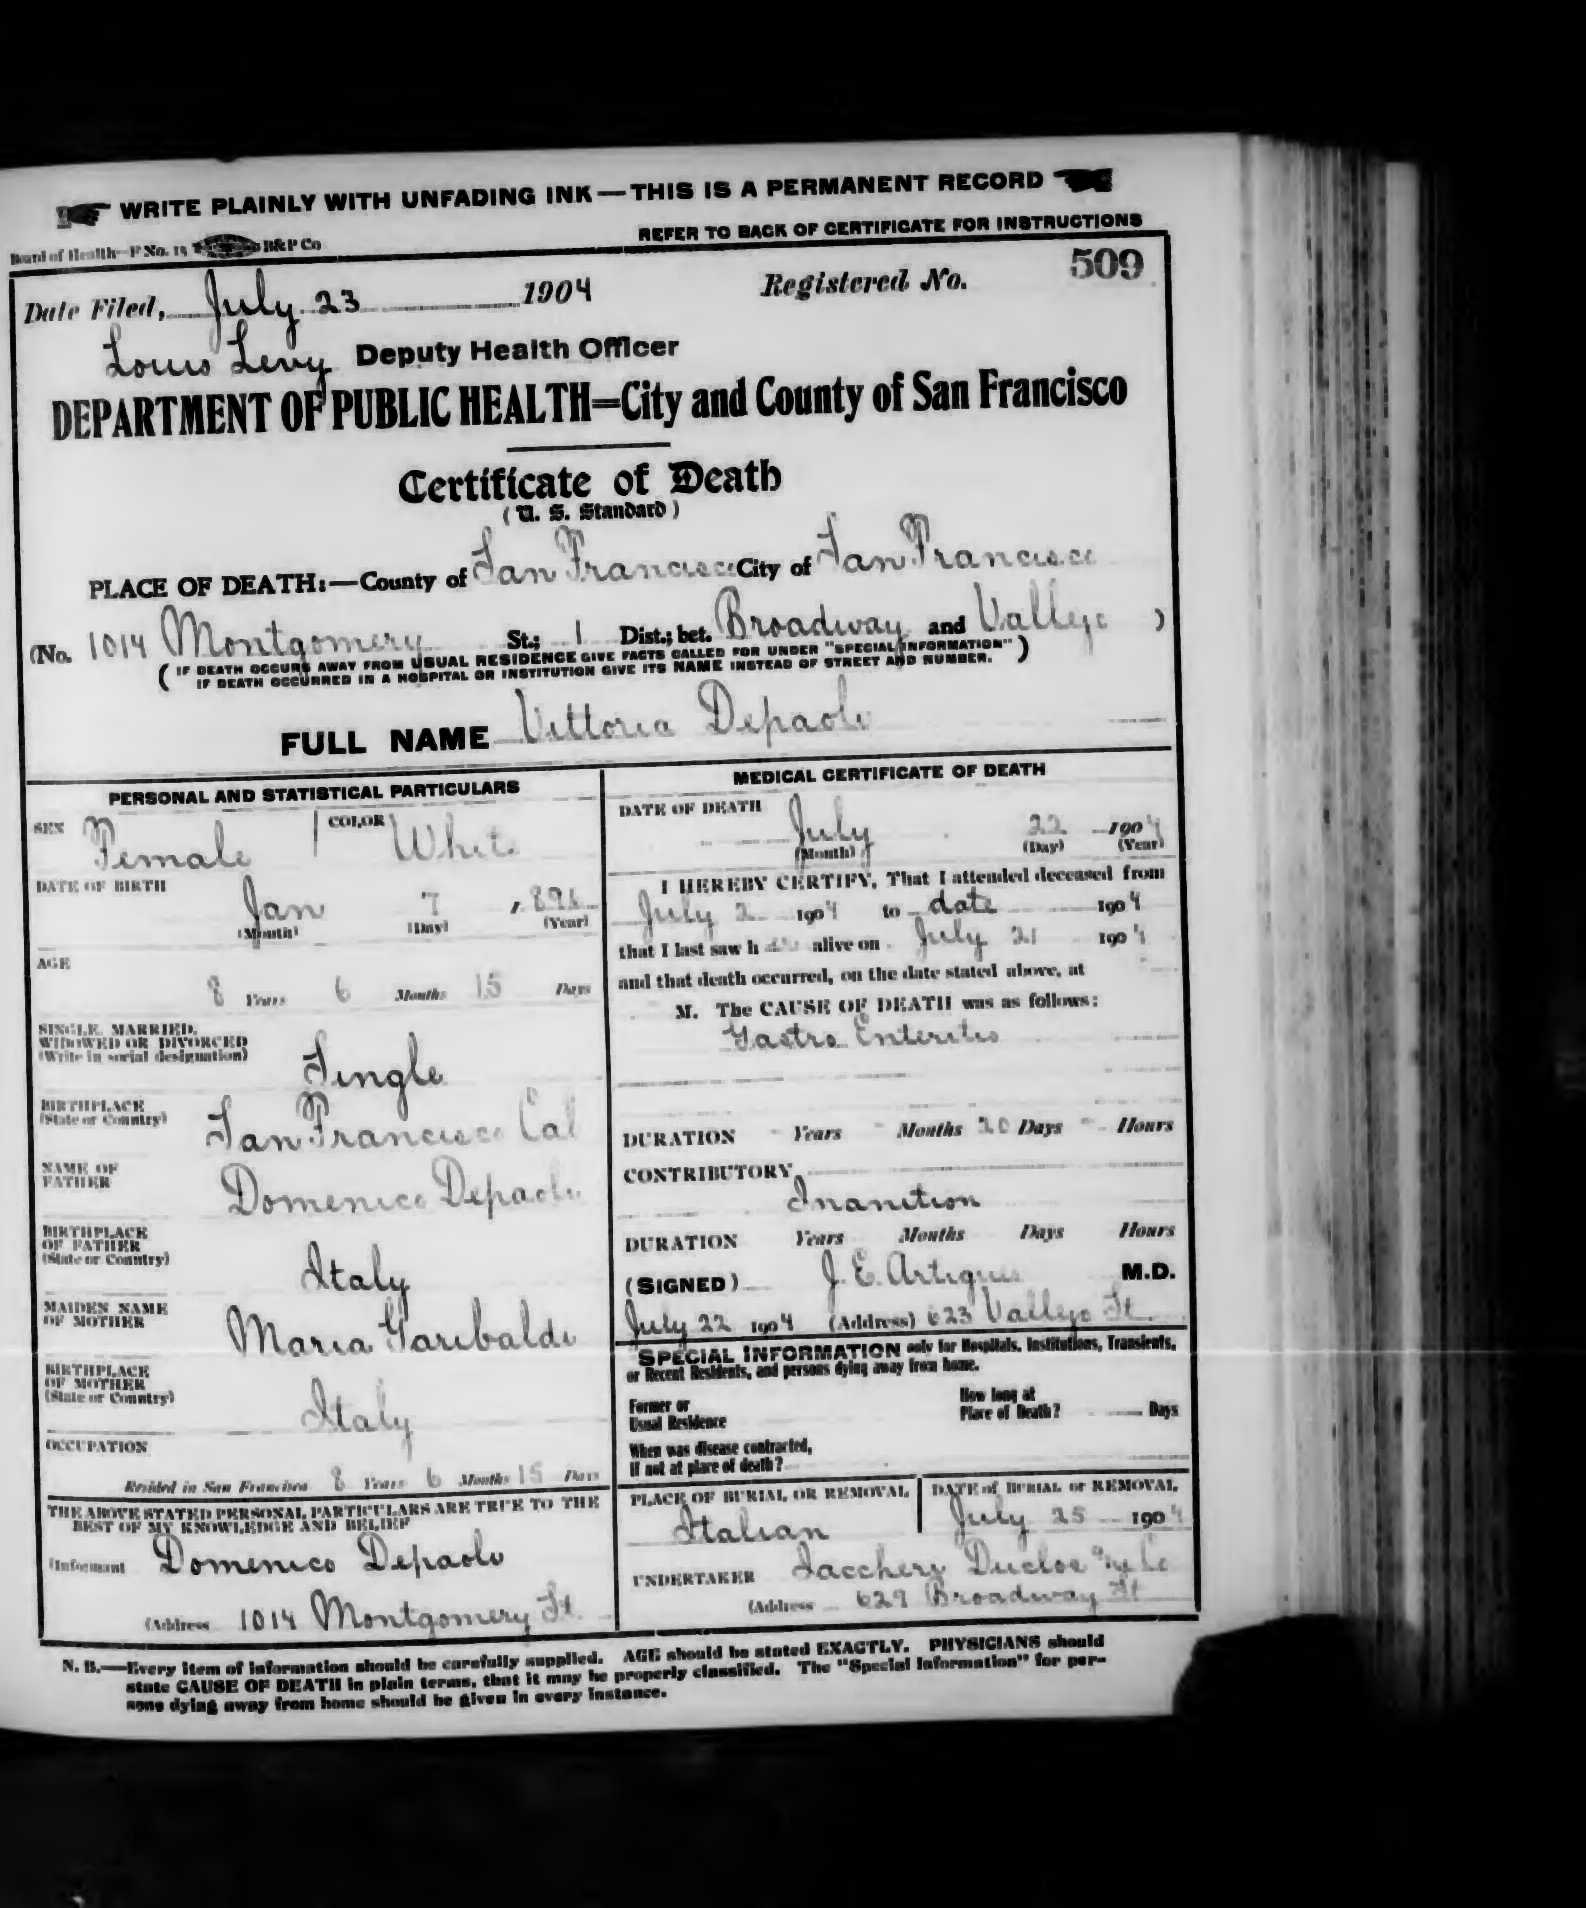 WRITE PLAINLY WITH UNFADING INK—THIS IS A PERMANENT RECORD
REFER TO BACK OF CERTIFICATE FOR INSTRUCTIONS
Board of Health—F No. 15 B&P Co
Date Filed, July 23 1904 Registered No. 509
Louis Levy Deputy Health Officer
DEPARTMENT OF PUBLIC HEALTH=City and County of San Francisco
Certificate of Death
(U. S. Standard)
PLACE OF DEATH:—County of San Francisco City of San Francisco
(No. 1014 Montgomery St.; 1 Dist.; bet. Broadway and Vallejo )
( IF DEATH OCCURS AWAY FROM USUAL RESIDENCE GIVE FACTS CALLED FOR UNDER "SPECIAL INFORMATION" )
IF DEATH OCCURRED IN A HOSPITAL OR INSTITUTION GIVE ITS NAME INSTEAD OF STREET AND NUMBER.
FULL NAME Vittoria Depaoli
PERSONAL AND STATISTICAL PARTICULARS
SEX Female COLOR White
DATE OF BIRTH Jan 7
(Month) (Day) (Year)
AGE
8 Years 6 Months 15 Days
SINGLE, MARRIED,
WIDOWED OR DIVORCED
(Write in social designation) Single
BIRTHPLACE
(State or Country) San Francisco Cal
NAME OF
FATHER Domenico Depaoli
BIRTHPLACE
OF FATHER
(State or Country) Italy
MAIDEN NAME
OF MOTHER Maria Garibaldi
BIRTHPLACE
OF MOTHER
(State or Country) Italy
OCCUPATION
Resided in San Francisco 8 Years 6 Months 15 Days
THE ABOVE STATED PERSONAL PARTICULARS ARE TRUE TO THE
BEST OF MY KNOWLEDGE AND BELIEF
(Informant Domenico Depaoli
(Address 1014 Montgomery St
MEDICAL CERTIFICATE OF DEATH
DATE OF DEATH
July 22 1904
(Month) (Day) (Year)
I HEREBY CERTIFY, That I attended deceased from
July 2 1904 to date 1904
that I last saw h alive on July 21 1904
and that death occurred, on the date stated above, at
M. The CAUSE OF DEATH was as follows:
Gastro Enteritis
DURATION Years Months 20 Days Hours
CONTRIBUTORY
Inanition
DURATION Years Months Days Hours
(SIGNED) J. E. Artigues M.D.
July 22 1904 (Address) 623 Vallejo St.
SPECIAL INFORMATION only for Hospitals, Institutions, Transients,
or Recent Residents, and persons dying away from home.
Former or
Usual Residence
How long at
Place of Death? Days
When was disease contracted,
If not at place of death?
PLACE OF BURIAL OR REMOVAL
Italian
DATE of BURIAL or REMOVAL
July 25 1904
UNDERTAKER Iaccheri Duclos & Co
(Address 629 Broadway St
N. B.—Every item of information should be carefully supplied. AGE should be stated EXACTLY. PHYSICIANS should
state CAUSE OF DEATH in plain terms, that it may be properly classified. The "Special Information" for per-
sons dying away from home should be given in every instance.